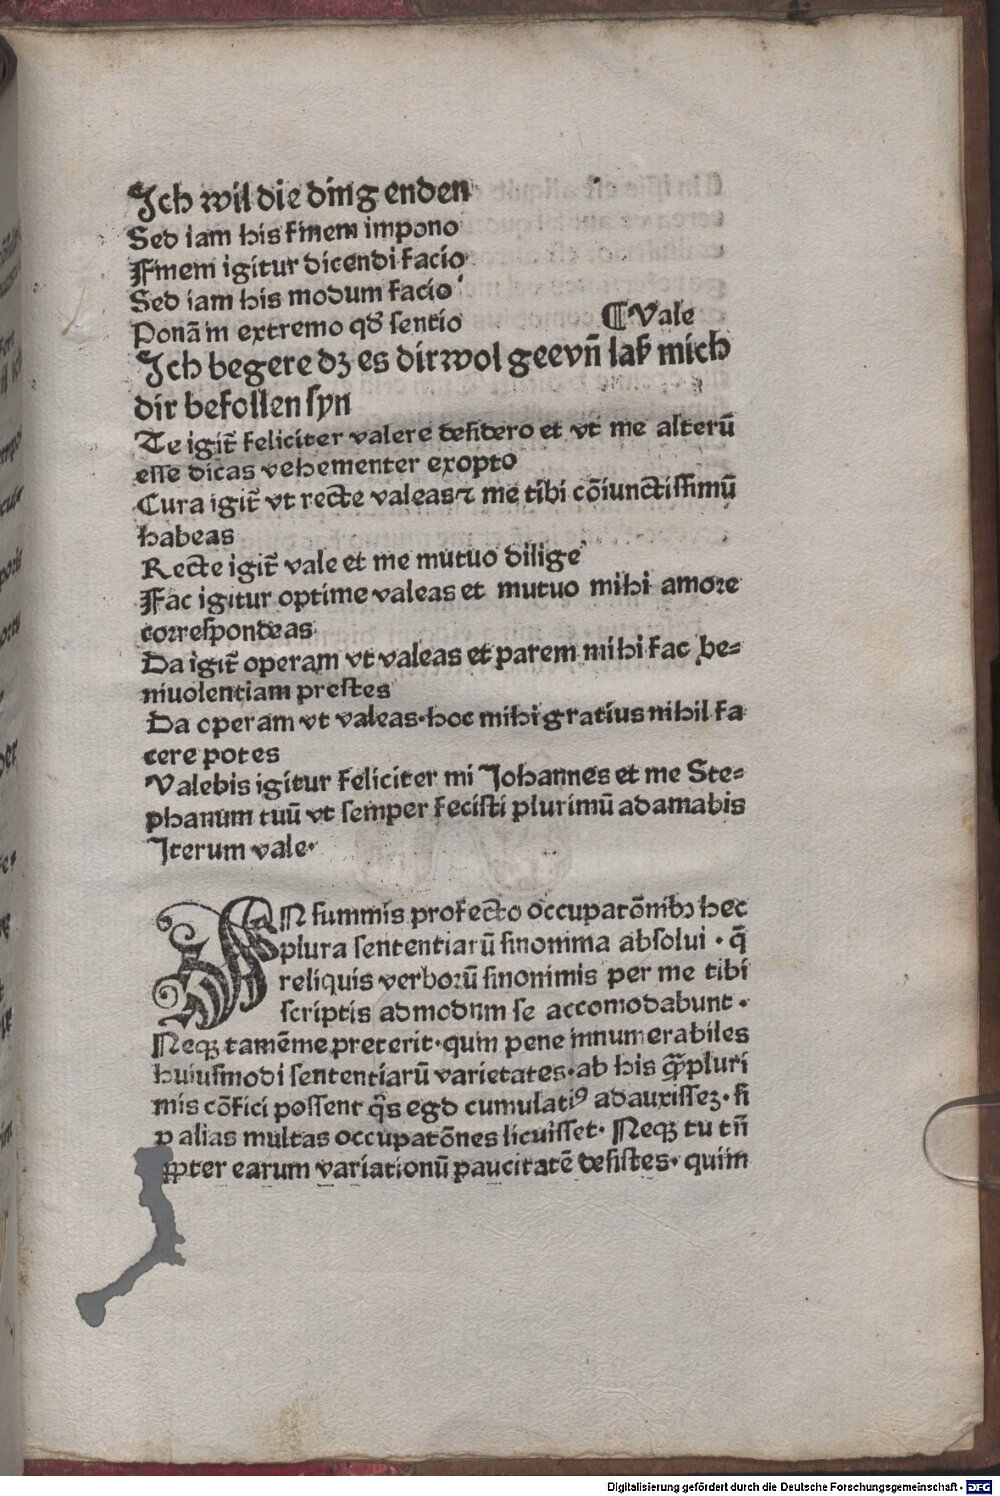 Ich wil die ding enden
Sed iam his finem impono
Finem igitur dicendi facio
Sed iam his modum facio
Ponā in extremo qđ sentio ¶Vale
Ich begere dz es dir wol gee vn̄ laß mich
dir befollen syn
Te igit̄ feliciter valere desidero et vt me alterū
esse dicas vehementer exopto
Cura igit̄ vt recte valeas ⁊ me tibi cōiunctissimū
habeas
Recte igit̄ vale et me mutuo dilige
Fac igitur optime valeas et mutuo mihi amore
correspondeas
Da igit̄ operam vt valeas et parem mihi fac be⸗
niuolentiam prestes
Da operam vt valeas·hoc mihi gratius nihil fa
cere potes
Valebis igitur feliciter mi Johannes et me Ste⸗
phanum tuū vt semper fecisti plurimū adamabis
Iterum vale·
IN summis profecto occupatōnibꝫ hec
plura sententiarū sinonima absolui · q̄
reliquis verborū sinonimis per me tibi
scriptis admodum se accomodabunt ·
Neqꝫ tamē me preterit·quin pene innumerabiles
huiusmodi sententiarū varietates·ab his q̄ꝫ pluri
mis cōfici possent q̄s ego cumulatiꝰ adauxissez·si
p alias multas occupatōnes licuisset· Neqꝫ tu tn̄
ꝓpter earum variationū paucitatē desistes· quim
Digitalisierung gefördert durch die Deutsche Forschungsgemeinschaft - DFG